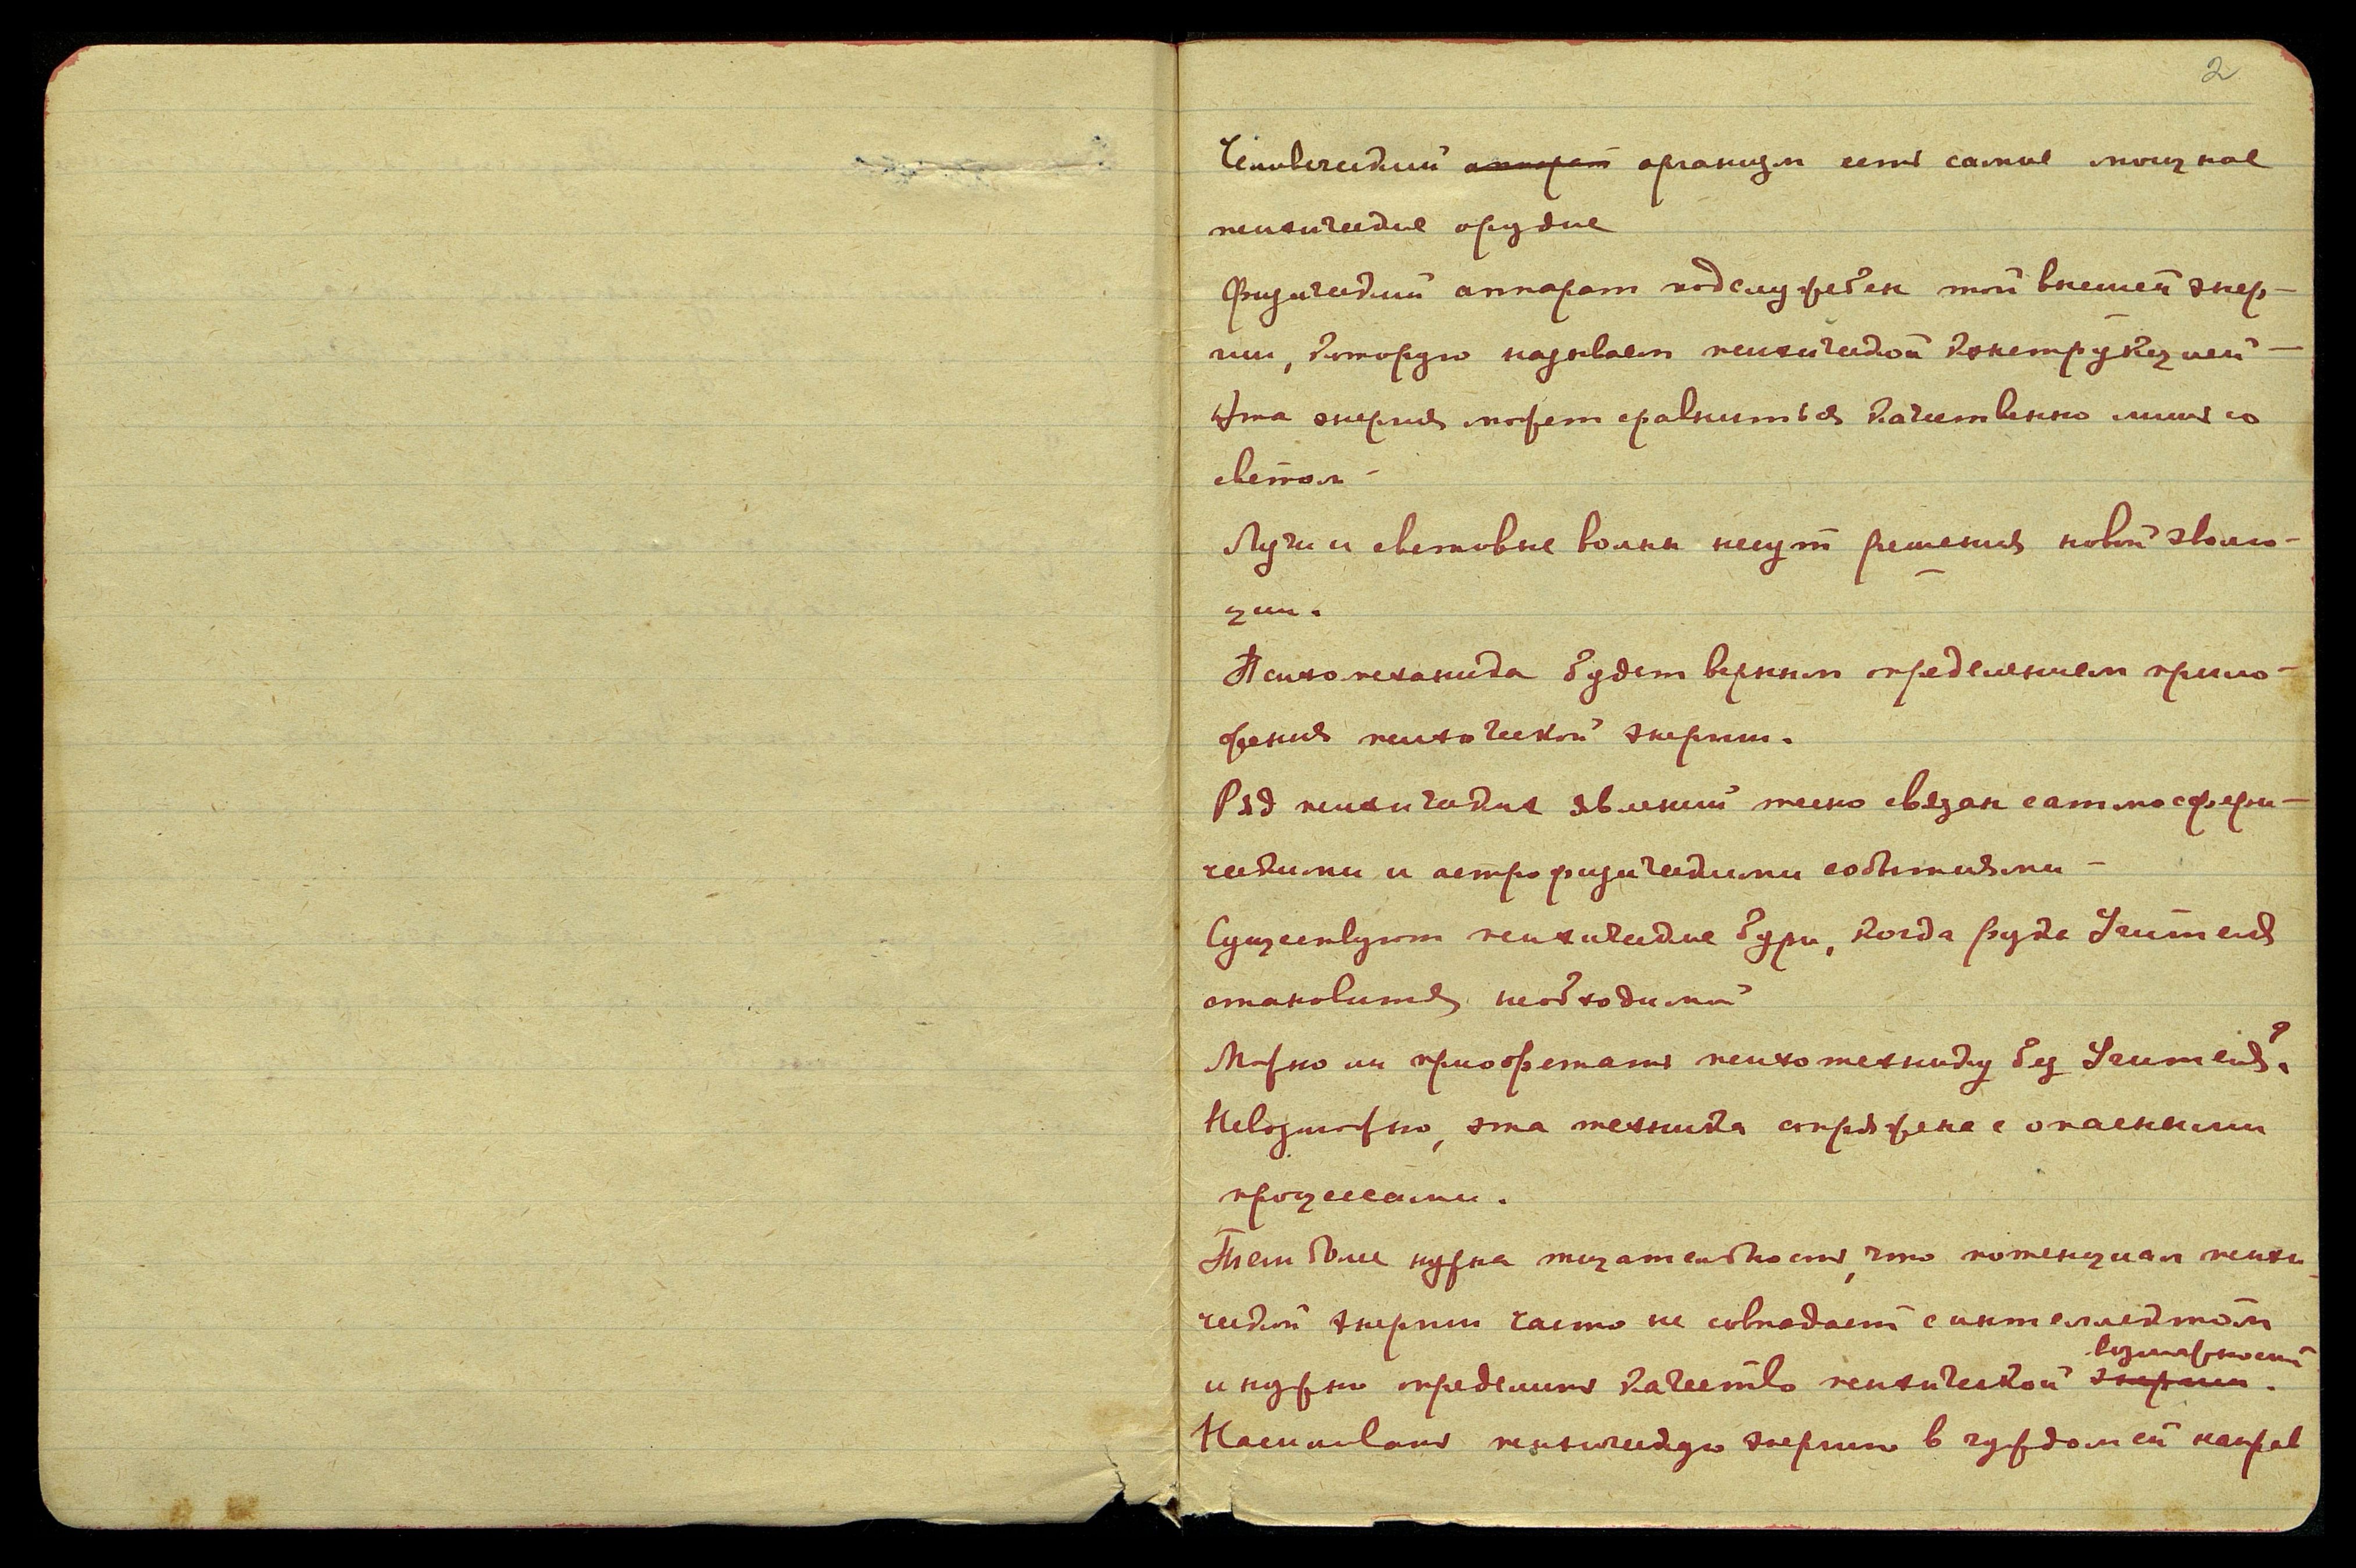 2
Человеческий аппарат организм есть самое мощное
психическое орудие
Физический аппарат подслужебен той внешней энер-
гии, которую называем психической конструкцией –
Эта энергия может сравниться качественно лишь со
светом –
Лучи и световые волны несут решения новой эволю-
ции.
Психомеханика будет верным определением прило-
жения психической энергии.
Ряд психических явлений тесно связан с атмосфери-
ческими и астрофизическими событиями –
Существуют психические бури, когда рука Учителя
становится необходимой
Можно ли приобретать психотехнику без Учителя?
Невозможно, эта техника сопряжена с опасными
процессами.
Тем более нужна тщательность, что потенциал психи-
ческой энергии часто не совпадает с интеллектом
возможности
и нужно определить качество психической энергии.
Насиловать психическую энергию в чуждом ей направ